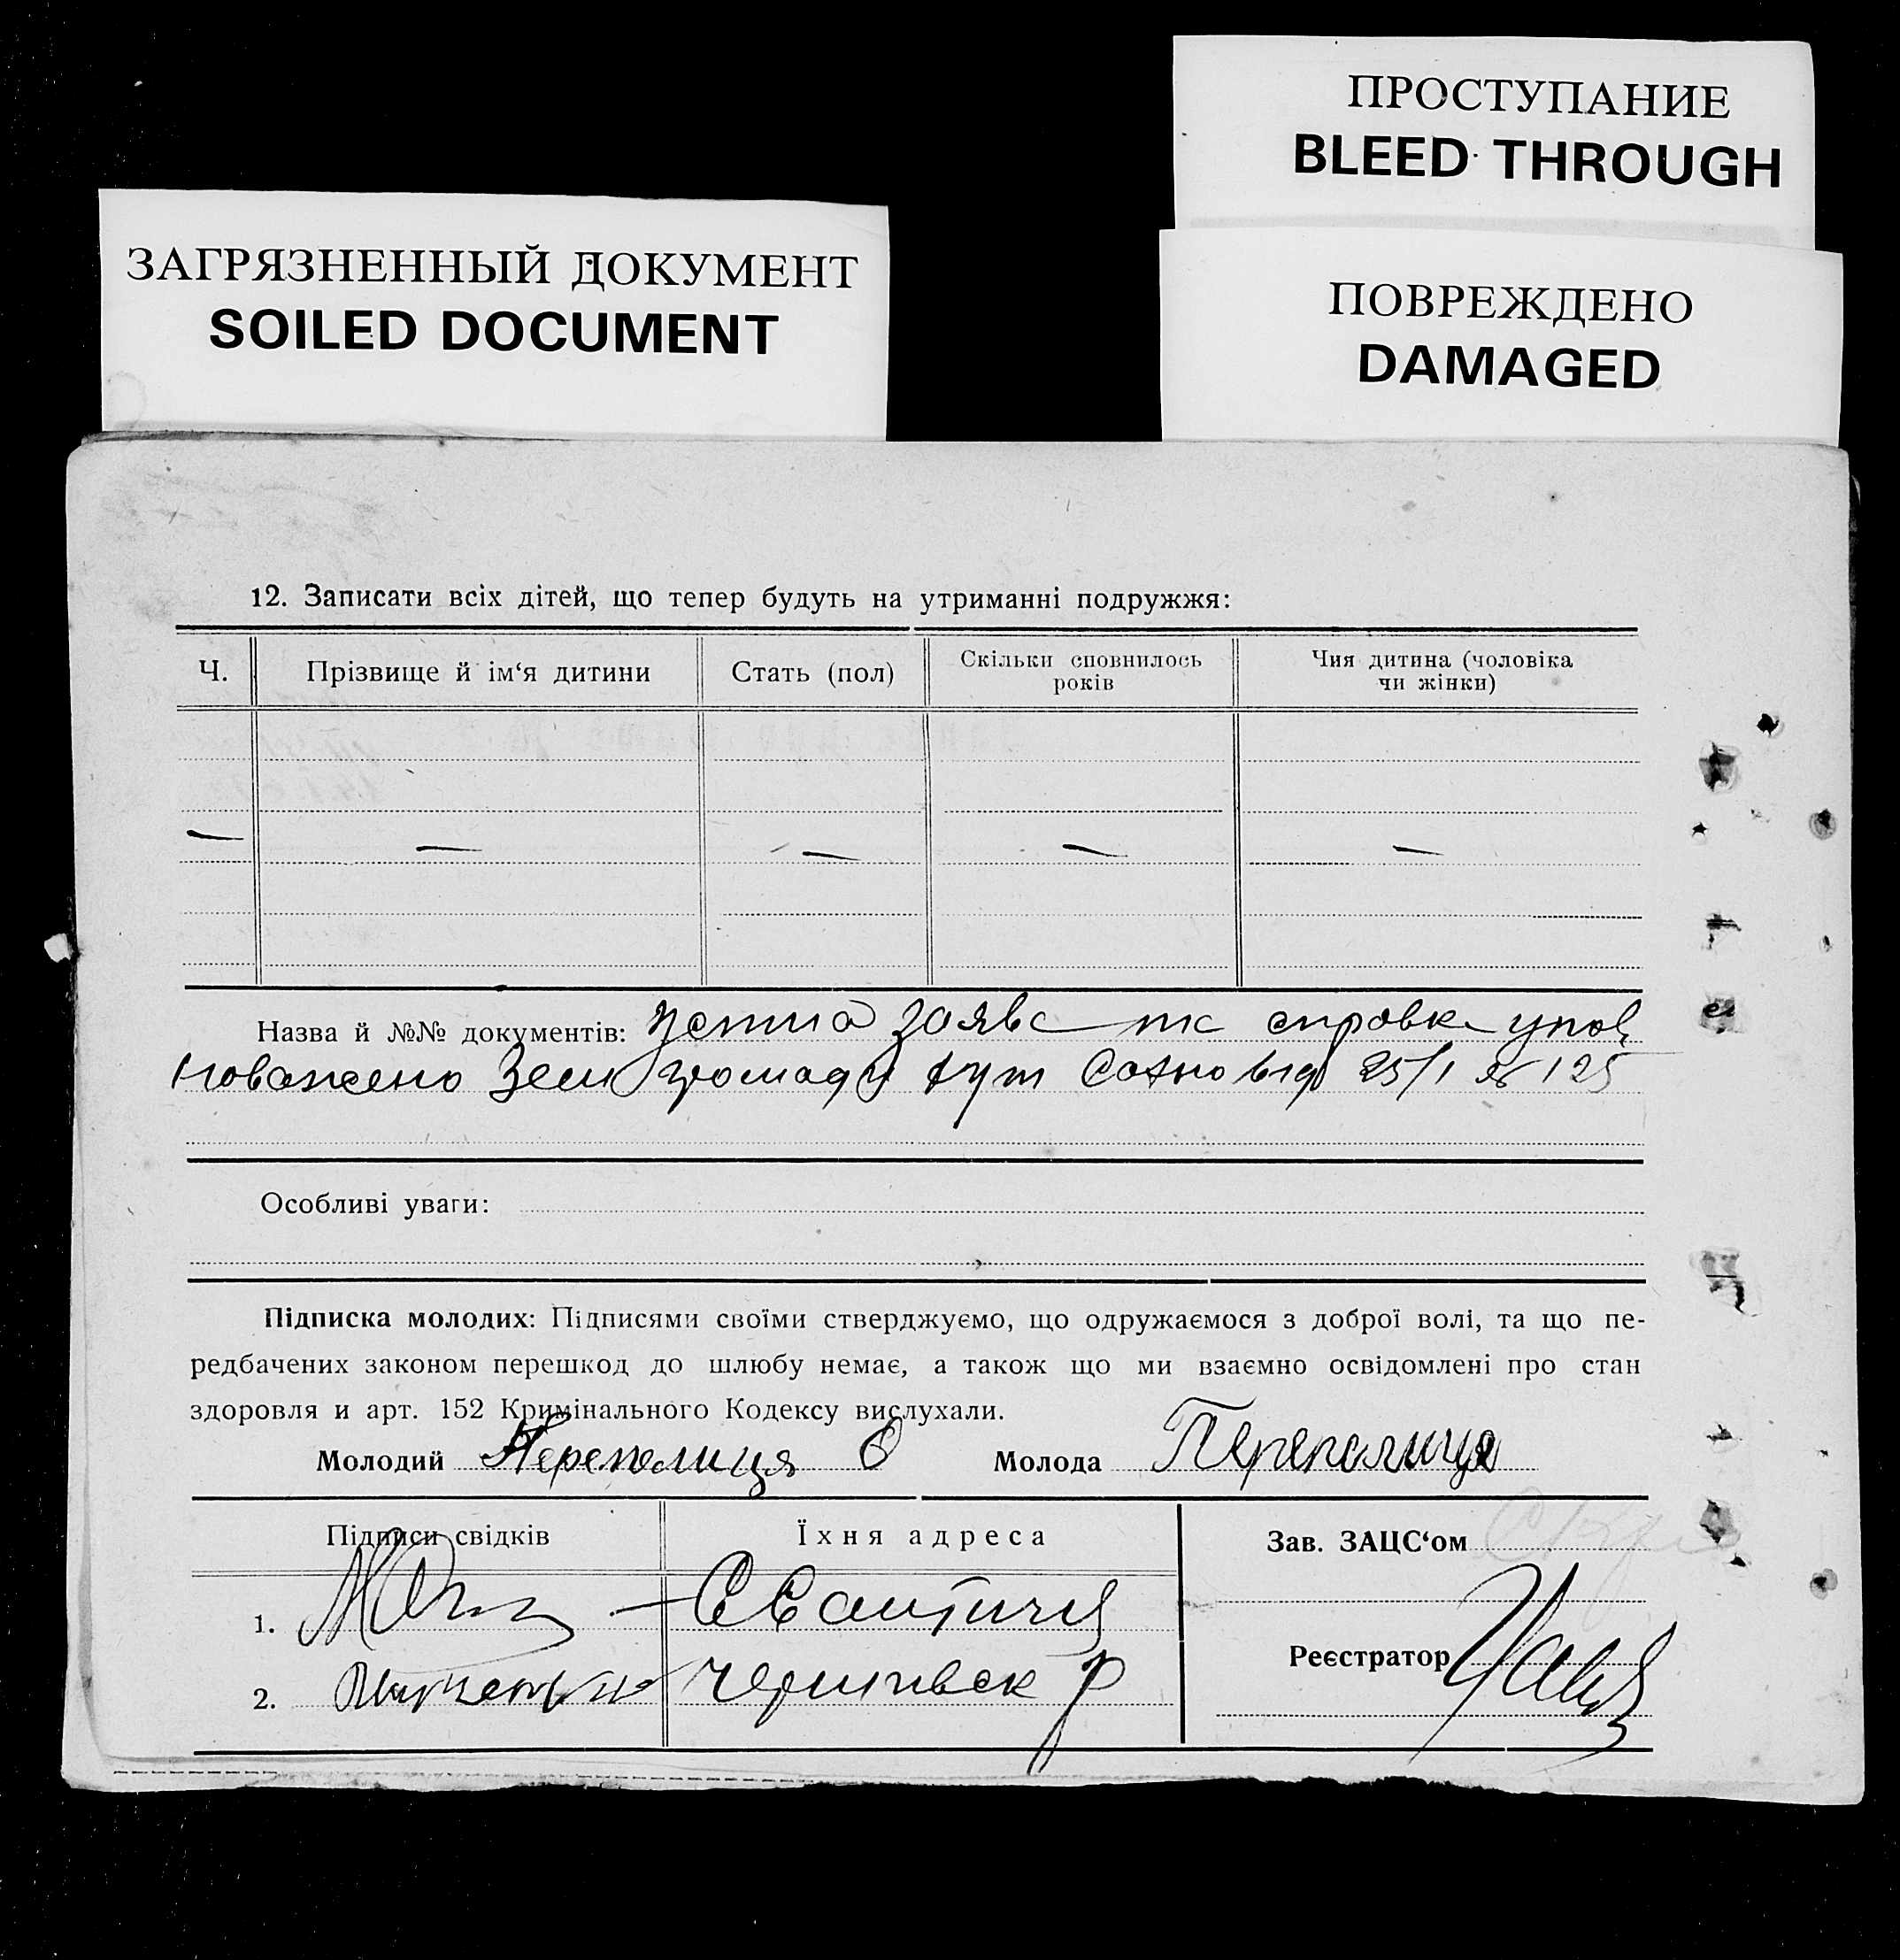 ПРОСТУПАНИЕ
BLEED THROUGH
ЗАГРЯЗНЕННЫЙ ДОКУМЕНТ
SOILED DOCUMENT
ПОВРЕЖДЕНО
DAMAGED
12. Записати всіх дітей, що тепер будуть на утриманні подружжя:
Ч. Прізвище й ім‘я дитини Стать (пол) Скільки сповнилось років Чия дитина (чоловіка чи жінки)
— — — — —
Назва й №№ документів: устна заява та справка упов
новажено Зем громади хут від 25/I № 125
Особливі уваги:
Підписка молодих: Підписями своїми стверджуємо, що одружаємося з доброї волі, та що пе-
редбачених законом перешкод до шлюбу немає, а також що ми взаємно освідомлені про стан
здоровля и арт. 152 Кримінального Кодексу вислухали.
Молодий Перепелиця О Молода Перепелиця
Підписи свідків Їхня адреса Зав. ЗАЦС‘ом
1.
Реєстратор
2. р